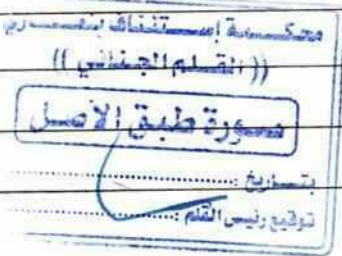 محكمة إستئناف بنغازي
(( القلم الجنائي ))
صورة طبق الأصل
بتاريخ :
توقيع رئيس القلم :